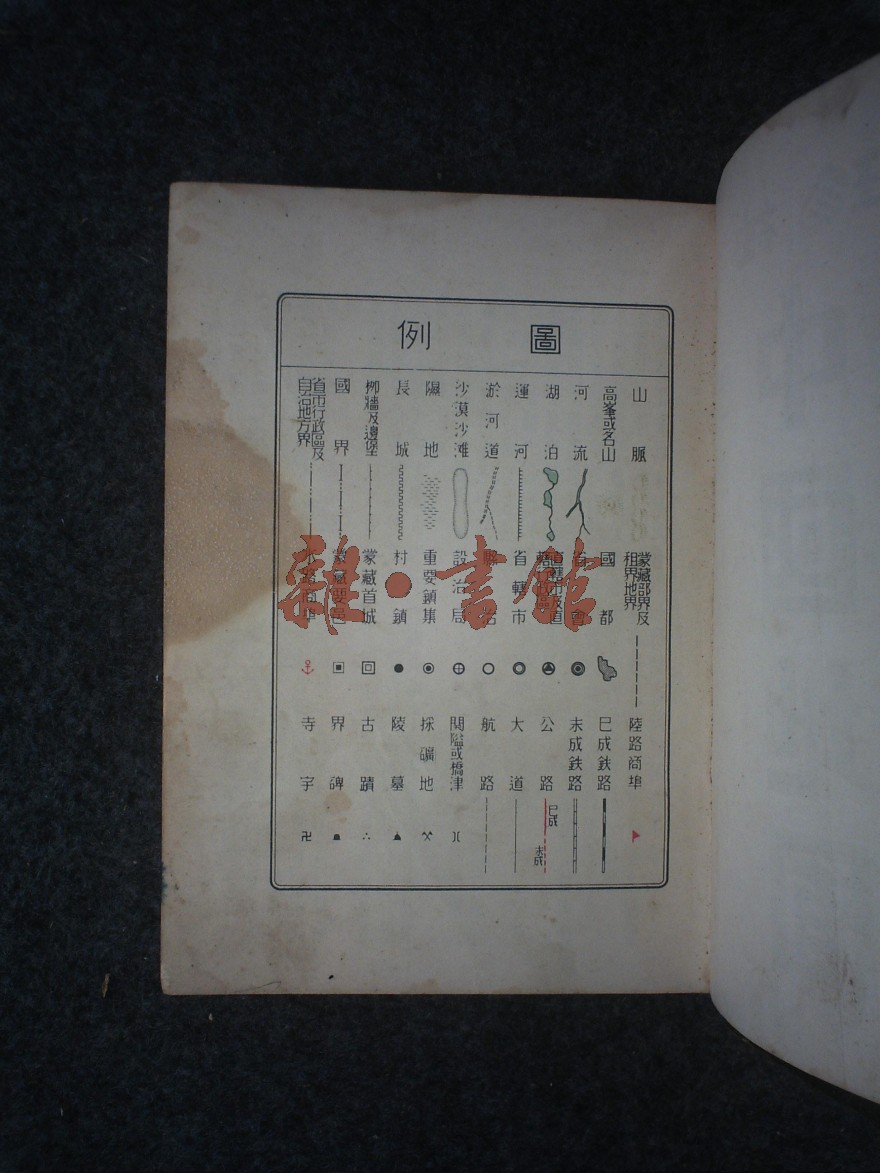 圖例
山脈
高峯或名山
河流
湖泊
運河
淤河道
沙漠沙滩
隰地
長城
柳牆及邊堡
國界
省市行政區及自治地方界
蒙藏部界及租界地界
國都
省會
省轄市
設治局
重要鎮集
村鎮
蒙藏首城
蒙藏要邑
水路商埠
陸路商埠
已成鉄路
未成鉄路
公路
已成
未成
大道
航路
関隘或橋津
採礦地
陵墓
古蹟
界碑
寺宇
雜·書館